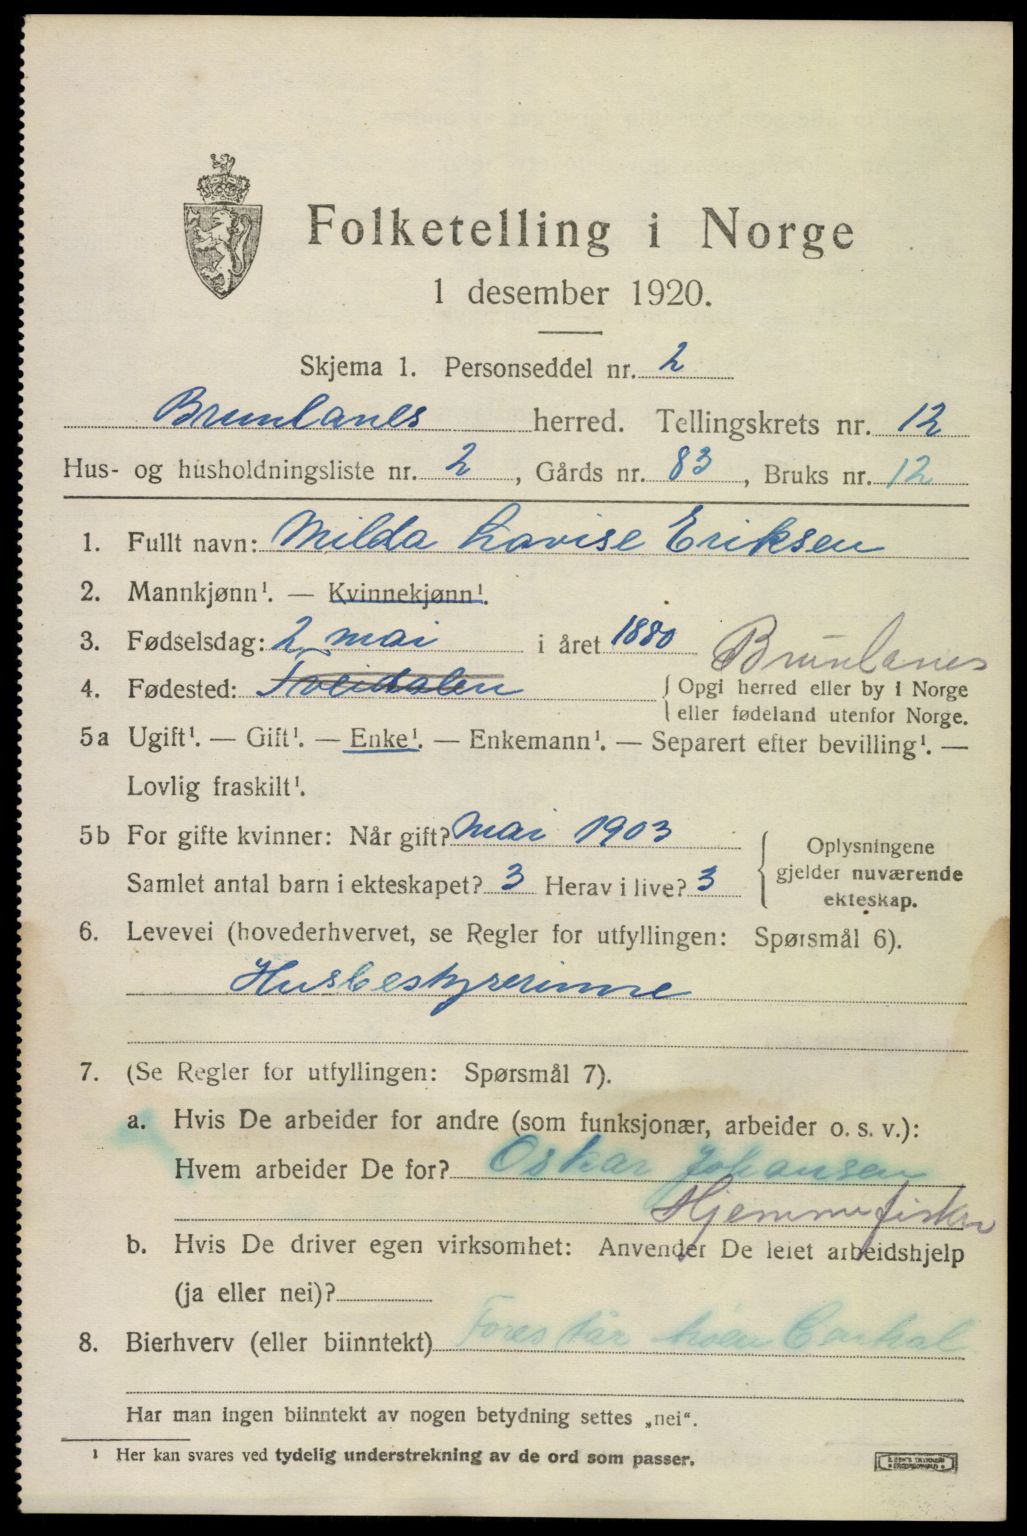 Folketelling i Norge
1 desember 1920.
Skjema 1. Personseddel nr. 2
Brunlanes herred. Tellingskrets nr. 12
Hus- og husholdningsliste nr. 2, Gårds nr. 83, Bruks nr. 12
1. Fullt navn: Milda Lovise Eriksen
2. Mannkjønn¹. — Kvinnekjønn¹.
3. Fødselsdag: 2 mai i året 1880 Brunlanes
4. Fødested: Tveidalen { Opgi herred eller by i Norge
eller fødeland utenfor Norge.
5a Ugift¹. — Gift¹. — Enke¹. — Enkemann¹. — Separert efter bevilling¹. —
Lovlig fraskilt¹.
5b For gifte kvinner: Når gift? Mai 1903
Samlet antal barn i ekteskapet? 3 Herav i live? 3
{ Oplysningene
gjelder nuværende
ekteskap.
6. Levevei (hovederhvervet, se Regler for utfyllingen: Spørsmål 6).
Husbestyrerinne
7. (Se Regler for utfyllingen: Spørsmål 7).
a. Hvis De arbeider for andre (som funksjonær, arbeider o. s. v.):
Hvem arbeider De for? Oskar Johansen
Hjemmefisker
b. Hvis De driver egen virksomhet: Anvender De leiet arbeidshjelp
(ja eller nei)?
8. Bierhverv (eller biinntekt) Forestår
Har man ingen biinntekt av nogen betydning settes „nei“.
¹ Her kan svares ved tydelig understrekning av de ord som passer.